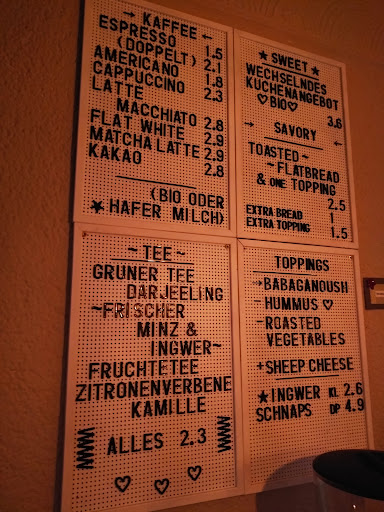 → KAFFEE ←
ESPRESSO 1.5
(DOPPELT) 2.1
AMERICANO 1.8
CAPPUCCINO 2.3
LATTE
MACCHIATO 2.8
FLAT WHITE 2.9
MATCHA LATTE 2.9
KAKAO 2.8
(BIO ODER
★ HAFER MILCH)
★ SWEET ★
WECHSELNDES
KUCHENANGEBOT
♡BIO♡
3.6
→ SAVORY ←
TOASTED ~
~ FLATBREAD
& ONE TOPPING
2.5
EXTRA BREAD 1
EXTRA TOPPING 1.5
~ TEE ~
GRÜNER TEE
DARJEELING
~FRISCHER
MINZ &
INGWER~
FRÜCHTETEE
ZITRONENVERBENE
KAMILLE
ALLES 2.3
♡ ♡ ♡
TOPPINGS
→BABAGANOUSH
- HUMMUS ♡
- ROASTED
VEGETABLES
+ SHEEP CHEESE
★ INGWER KL 2.6
SCHNAPS DP 4.9